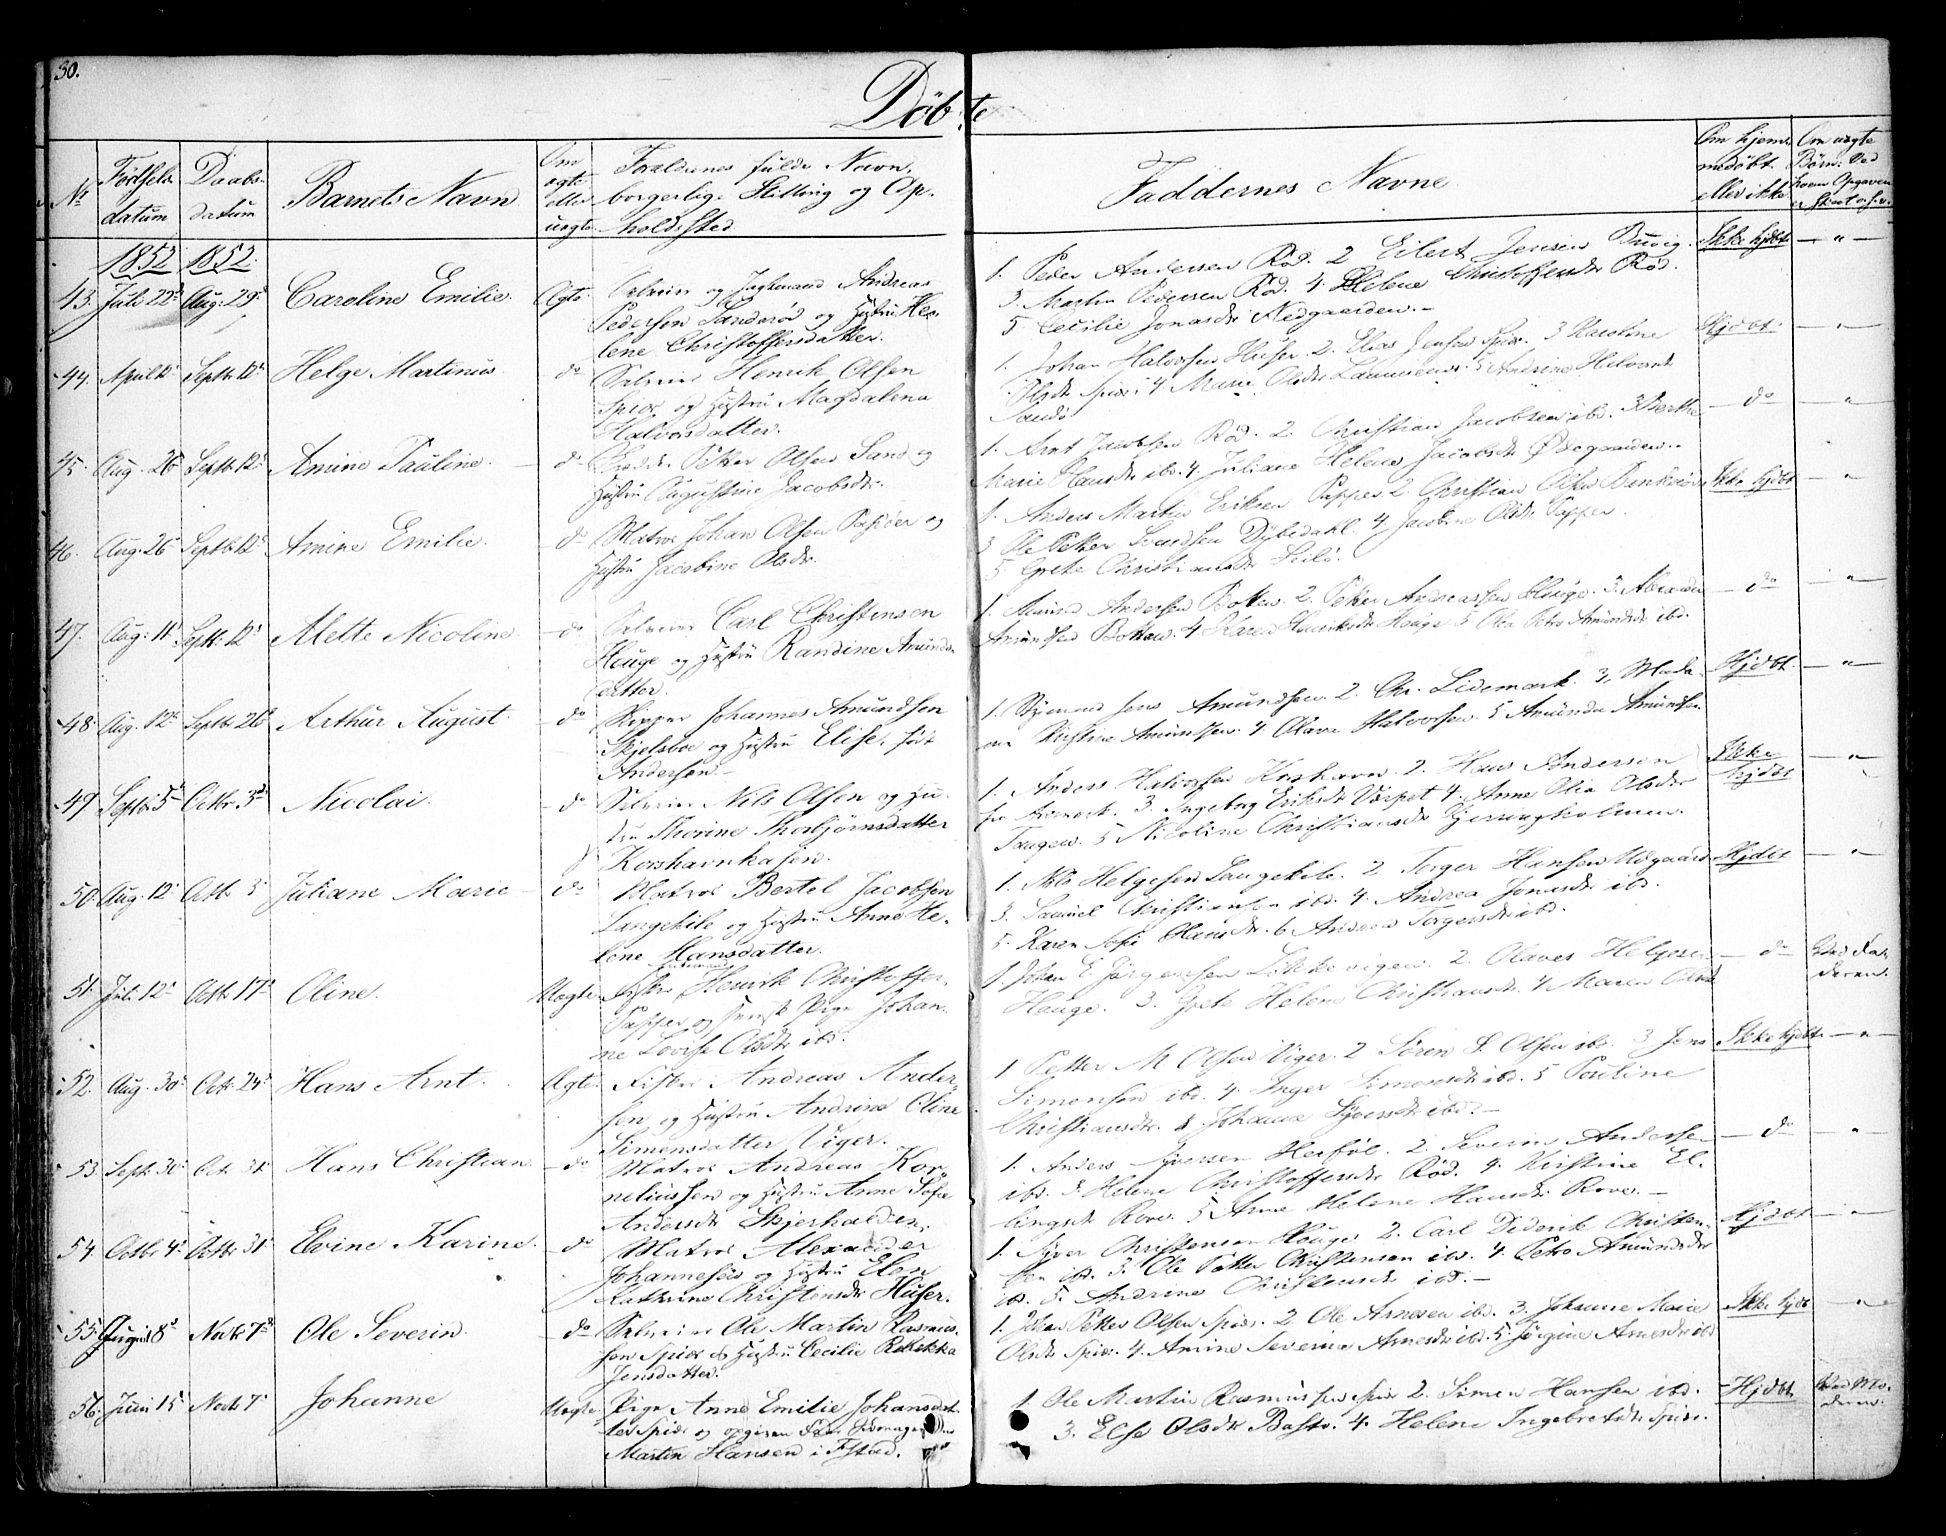 30.
Døbte
No
Fødsels datum
Daabs datum
Barnets Navn
Om ægte eller uægte
Forældrenes fulde Navn, borgerlige Stilling og Opholdssted
Faddernes Navne
Om hjemmedøbt eller ikke
Om uægte Børn: Ved hvem Opgaven er skeet o.s.v.
1852 1852
43. Juli 22 Aug. 29 Caroline Emilie. Ægte.
Selveier og Jagtmand Andreas
Pedersen Sanderød og Hustru He-
lene Christoffersdatter.
1. Peder Andersen Rød. 2 Eilert Jensen Buvig.
3. Martin Pedersen Rød. 4. Helene Christoffersdtr Rød.
5 Cecilie Jonasdtr Nedgaarden.-
Ikke hjdbt -"-
44. April 12 Septr 12 Helge Martinus do
Selveier Henrik Olsen
Spiær og Hustru Magdalena
Halvorsdatter.
1. Johan Halvorsen Huser. 2. Elias Jensen Spiær. 3 Karoline
Olsdtr Spiær. 4. Marie Olsdtr 5 Andrine
Sandø
Hjdbt. -"-
45. Aug. 26 Septr 12 Amine Pauline. do
Petter Olsen Sand og
Hustru Augustine Jacobsdtr.
1. Arnt Jacobsen Rød. 2. Christian Jacobsen ibd. 3 Berthe
Marie Hansdtr ibd. 4. Juliane Helene Jacobsdtr Ødegaarden.
do -"-
46. Aug. 26 Septbr 12 Amine Emilie. do
Matros Johan Olsen Papper og
Hustru Jacobine Olsdtr.
1. Anders Martin Eriksen Papper 2 Christian Olsen
3 Ole Petter Svendsen Dybedahl. 4 Jacobine Olsdtr Papper.
5 Grete Christiansdtr
Ikke hjdbt -"-
47. Aug. 11 Septr. 12 Alette Nicoline. do
Selveier Carl Christensen
Houge og Hustru Randine Amunds-
datter.
1. Amund Andersen Botten. 2. Petter Andreassen Houge. 3. Alexander
Amundsen Botten. 4 Karen Henriksdtr Houge 5 Ole Petro Amundsdtr ibd.
do -"-
48. Aug. 12 Septbr 26 Arthur August. do
Skipper Johannes Amundsen
Skjelsboe og Hustru Elise, født
Andersen.-
1. Styrmand Jens Amundsen. 2. Chr. Lidemark. 3, Mada-
me Kirstine Amundsen. 4. Olava Halvorsen. 5 Amunda Amundsen
Hjdbt. -"-
49 Septbr 5 Octbr. 3 Nicolai. do
Selveier Nils Olsen og Hu-
stru Thorine Thorbjørnsdatter
Korshavnkasen.
1. Anders Halvorsen Korshavn. 2. Hans Andersen
fra Aremark. 3. Ingeborg Eriksdtr Værpet 4. Anne Olia Olsdtr
Tangen. 5 Nicoline Christiansdtr Kjerringholmen.
Ikke hjdbt -"-
50 Aug. 12 Octbr 3 Juliane Marie do
Matros Bertel Jacobsen
Langekile og Hustru Anne He-
lene Hansdatter.
1. Nils Helgesen Langekile. 2. Torger Hansen Udgaard
3. Samuel Christiansen ibd. 4. Andrea Jonasdtr ibd.
5. Karen Sofi Olausdtr. 6 Andrea Torgersdtr ibd.
Hjdbt -"-
51. Juli 12 Octbr 17 Oline. Uægte.
Fisker Henrik Christoffer-
Papper og Pige Johan-
ne Lovise Olsdtr ibd.
1 Johan E Jørgensen Løkkevigen. 2. Olaves Helgesen
Hauge. 3. Grete Helene Christiansdtr. 4 Maren Olsdtr
do Ved Fa-
deren.
52. Aug. 30 Octr 24 Hans Arnt. Ægte.
Fisker Andreas Ander-
sen og Hustru Andrine Oline
Simensdatter Viger.
1 Petter M. Olsen Viger. 2 Søren S. Olsen ibd. 3 Jens
Simensen ibd. 4. Inger Simensdtr ibd. 5 Pouline
Christiansdtr. 6 Johanne Syversdtr ibd.-
Ikke hjdbt -"-
53. Septr 30 Octr 31 Hans Christian. do
Matros Andreas Kor-
neliussen og Hustru Anne Sofie
Andersdtr Skjærhalden.
1. Anders Syversen Herføl. 2. Severin Andersen
ibd. 3. Helene Christoffersdtr Rød. 4. Kirstine El-
lingsdtr Rove. 5 Anne Helene Hansdtr Rove.-
do -"-
54. Octbr 4 Octbr 31 Evine Karine. do
Matros Alexander
Johannesen og Hustru Elen
Kathrine Christensdtr Huser.
1. Syver Christensen Houge 2. Carl Diderik Christen-
sen ibd. 3. Ole Petter Christensen ibd. 4. Petro Amundsdtr
ibd. 5. Andrine Christensdtr ibd.-
Hjdbt -"-
55. August 8 Novbr 7 Ole Severin. do
Selveier Ole Martin Rasmus-
sen Spiær og Hustru Cecilie Rebekka
Jensdatter.
1. Johan Petter Olsen Spiær. 2 Ole Arnesen ibd. 3. Johanne Marie
Olsdtr Spiær. 4. Amine Severine Arnesdtr ibd. 5. Jørgine Arnesdtr ibd
Ikke hjdbt -"-
56. Juni 15 Novbr 7 Johanne Uægte.
Pige Anne Emilie Johansdat-
ter Spiær og opgiven Far
Martin Hansen i Fstad.
1. Ole Martin Rasmussen Spiær 2. Simen Hansen ibd.
3. Else Olsdtr Basto. 4. Helene Ingebretsdtr Spiær.
Hjdbt. Ved Mo-
deren.